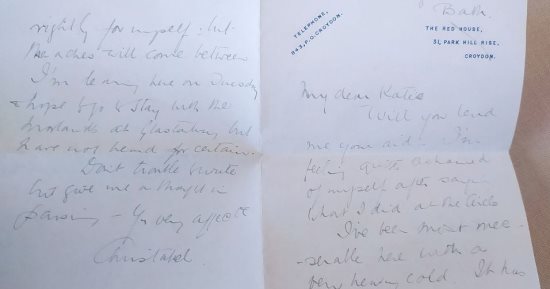 rightly for myself : but
the aches will come between
I'm leaving here on Tuesday
& hope to go to stay with the
Morlands at Glastonbury but
have not heard for certain.
Don't trouble to write
but give me a thought in
passing – Yr very affecte
Christabel
Bath.
TELEPHONE,
843, P.O. CROYDON.
THE RED HOUSE,
51, PARK HILL RISE,
CROYDON.
My dear Katie
Will you lend
me your aid? I'm
feeling quite ashamed
of myself after saying
what I did at the Circle
I've been most mis-
-erable here with a
very heavy cold. It has